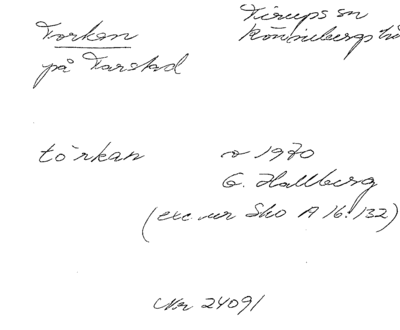 Torkan
på Tarstad
Tirups sn
Rönnebergs hä
tòrkan
v 1970
G. Hallberg
(exc. ur Sko A 16:132)
Nr 24091